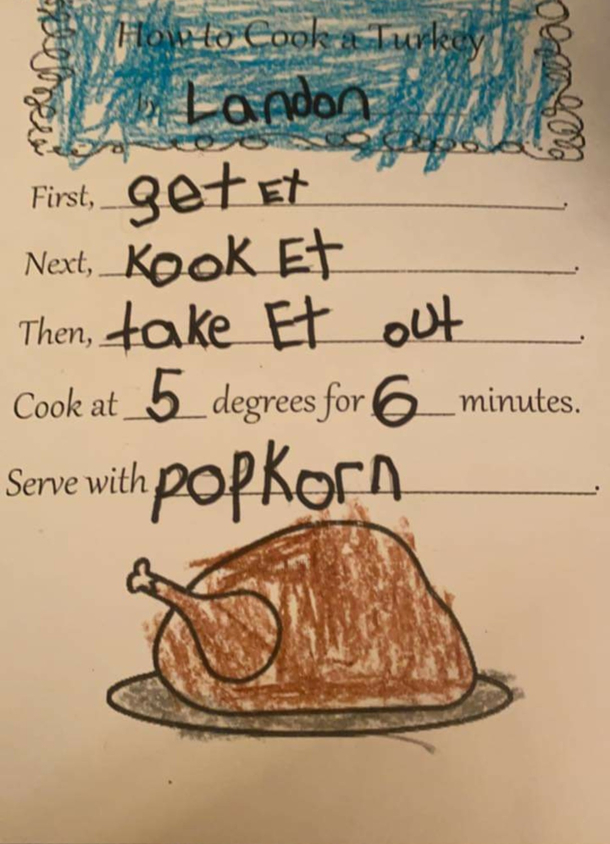 How to Cook a Turkey
by Landon
First, get Et.
Next, Kook Et.
Then, take Et out.
Cook at 5 degrees for 6 minutes.
Serve with popKorn.